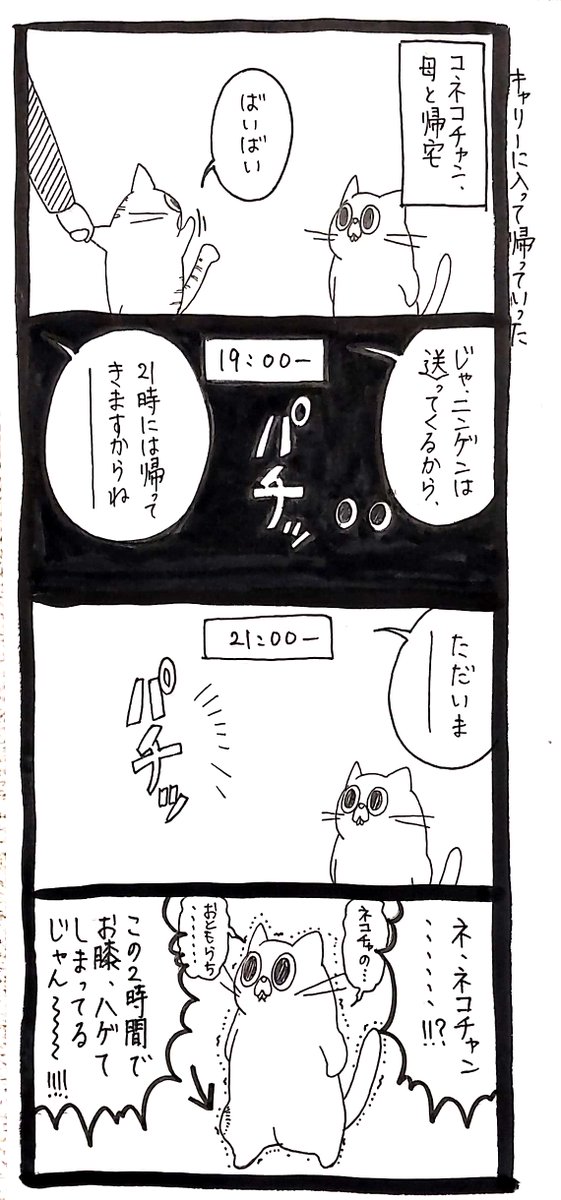 キャリーに入って帰っていった
コネコチャン、
母と帰宅
ばいばい
じゃ、ニンゲンは
送ってくるから、
19:00ー
パチッ
21時には帰って
きますからね
ーー
ただいま
ーー
21:00ー
パチッ
ネ、ネコチャン
・・・・・・!!?
ネコチャの…
おともらち
・・・・・・
この2時間で
お膝、ハゲて
しまってる
じゃん〜〜〜!!!!